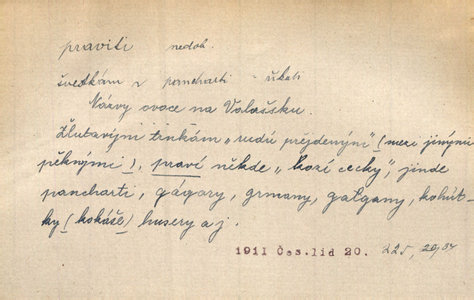 praviti nedok.
švestkám z pancharti - říkati
Názvy ovoce na Valašsku.
Žlutavými trnkám „rudú prejdenými" (mezi jinými
pěknými), praví někde „kozí cecky", jinde
pancharti, gágory, grmany, galgany, kohút-
ky (kokáše) husery a j.
1911 Čes.lid 20. 225,